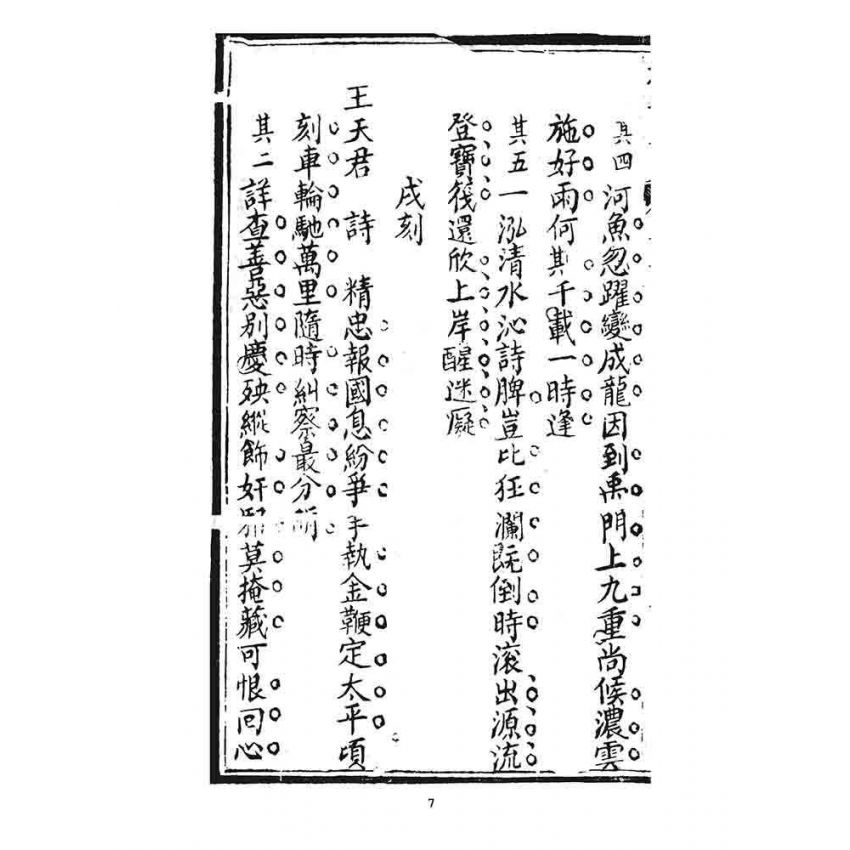 其四河魚忽躍變成龍因到禹門上九重尚候濃雲
施好雨何其千載一時逢
其五一泓清水沁詩脾豈比狂瀾既倒時滾出源流
登寶筏還欣上岸醒迷癡
戌刻
王天君 詩 精忠報國息紛爭手執金鞭定太平頃
刻車輪馳萬里隨時糾察最分明
其二詳查善惡別慶殃縱飾奸邪莫掩藏可恨回心
7